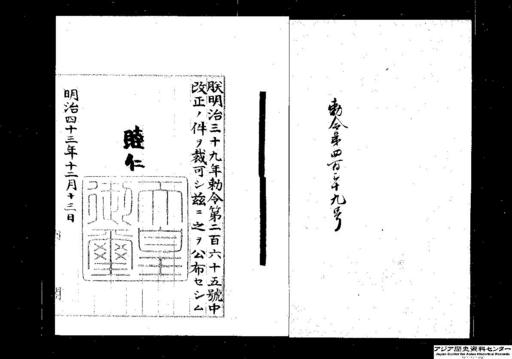 勅令第四百三十九号
朕明治三十九年勅令第二百六十五號中
改正ノ件ヲ裁可シ茲ニ之ヲ公布セシム
睦仁
天皇
御璽
明治四十三年十二月十三日
アジア歴史資料センター
Japan Center for Asian Historical Records